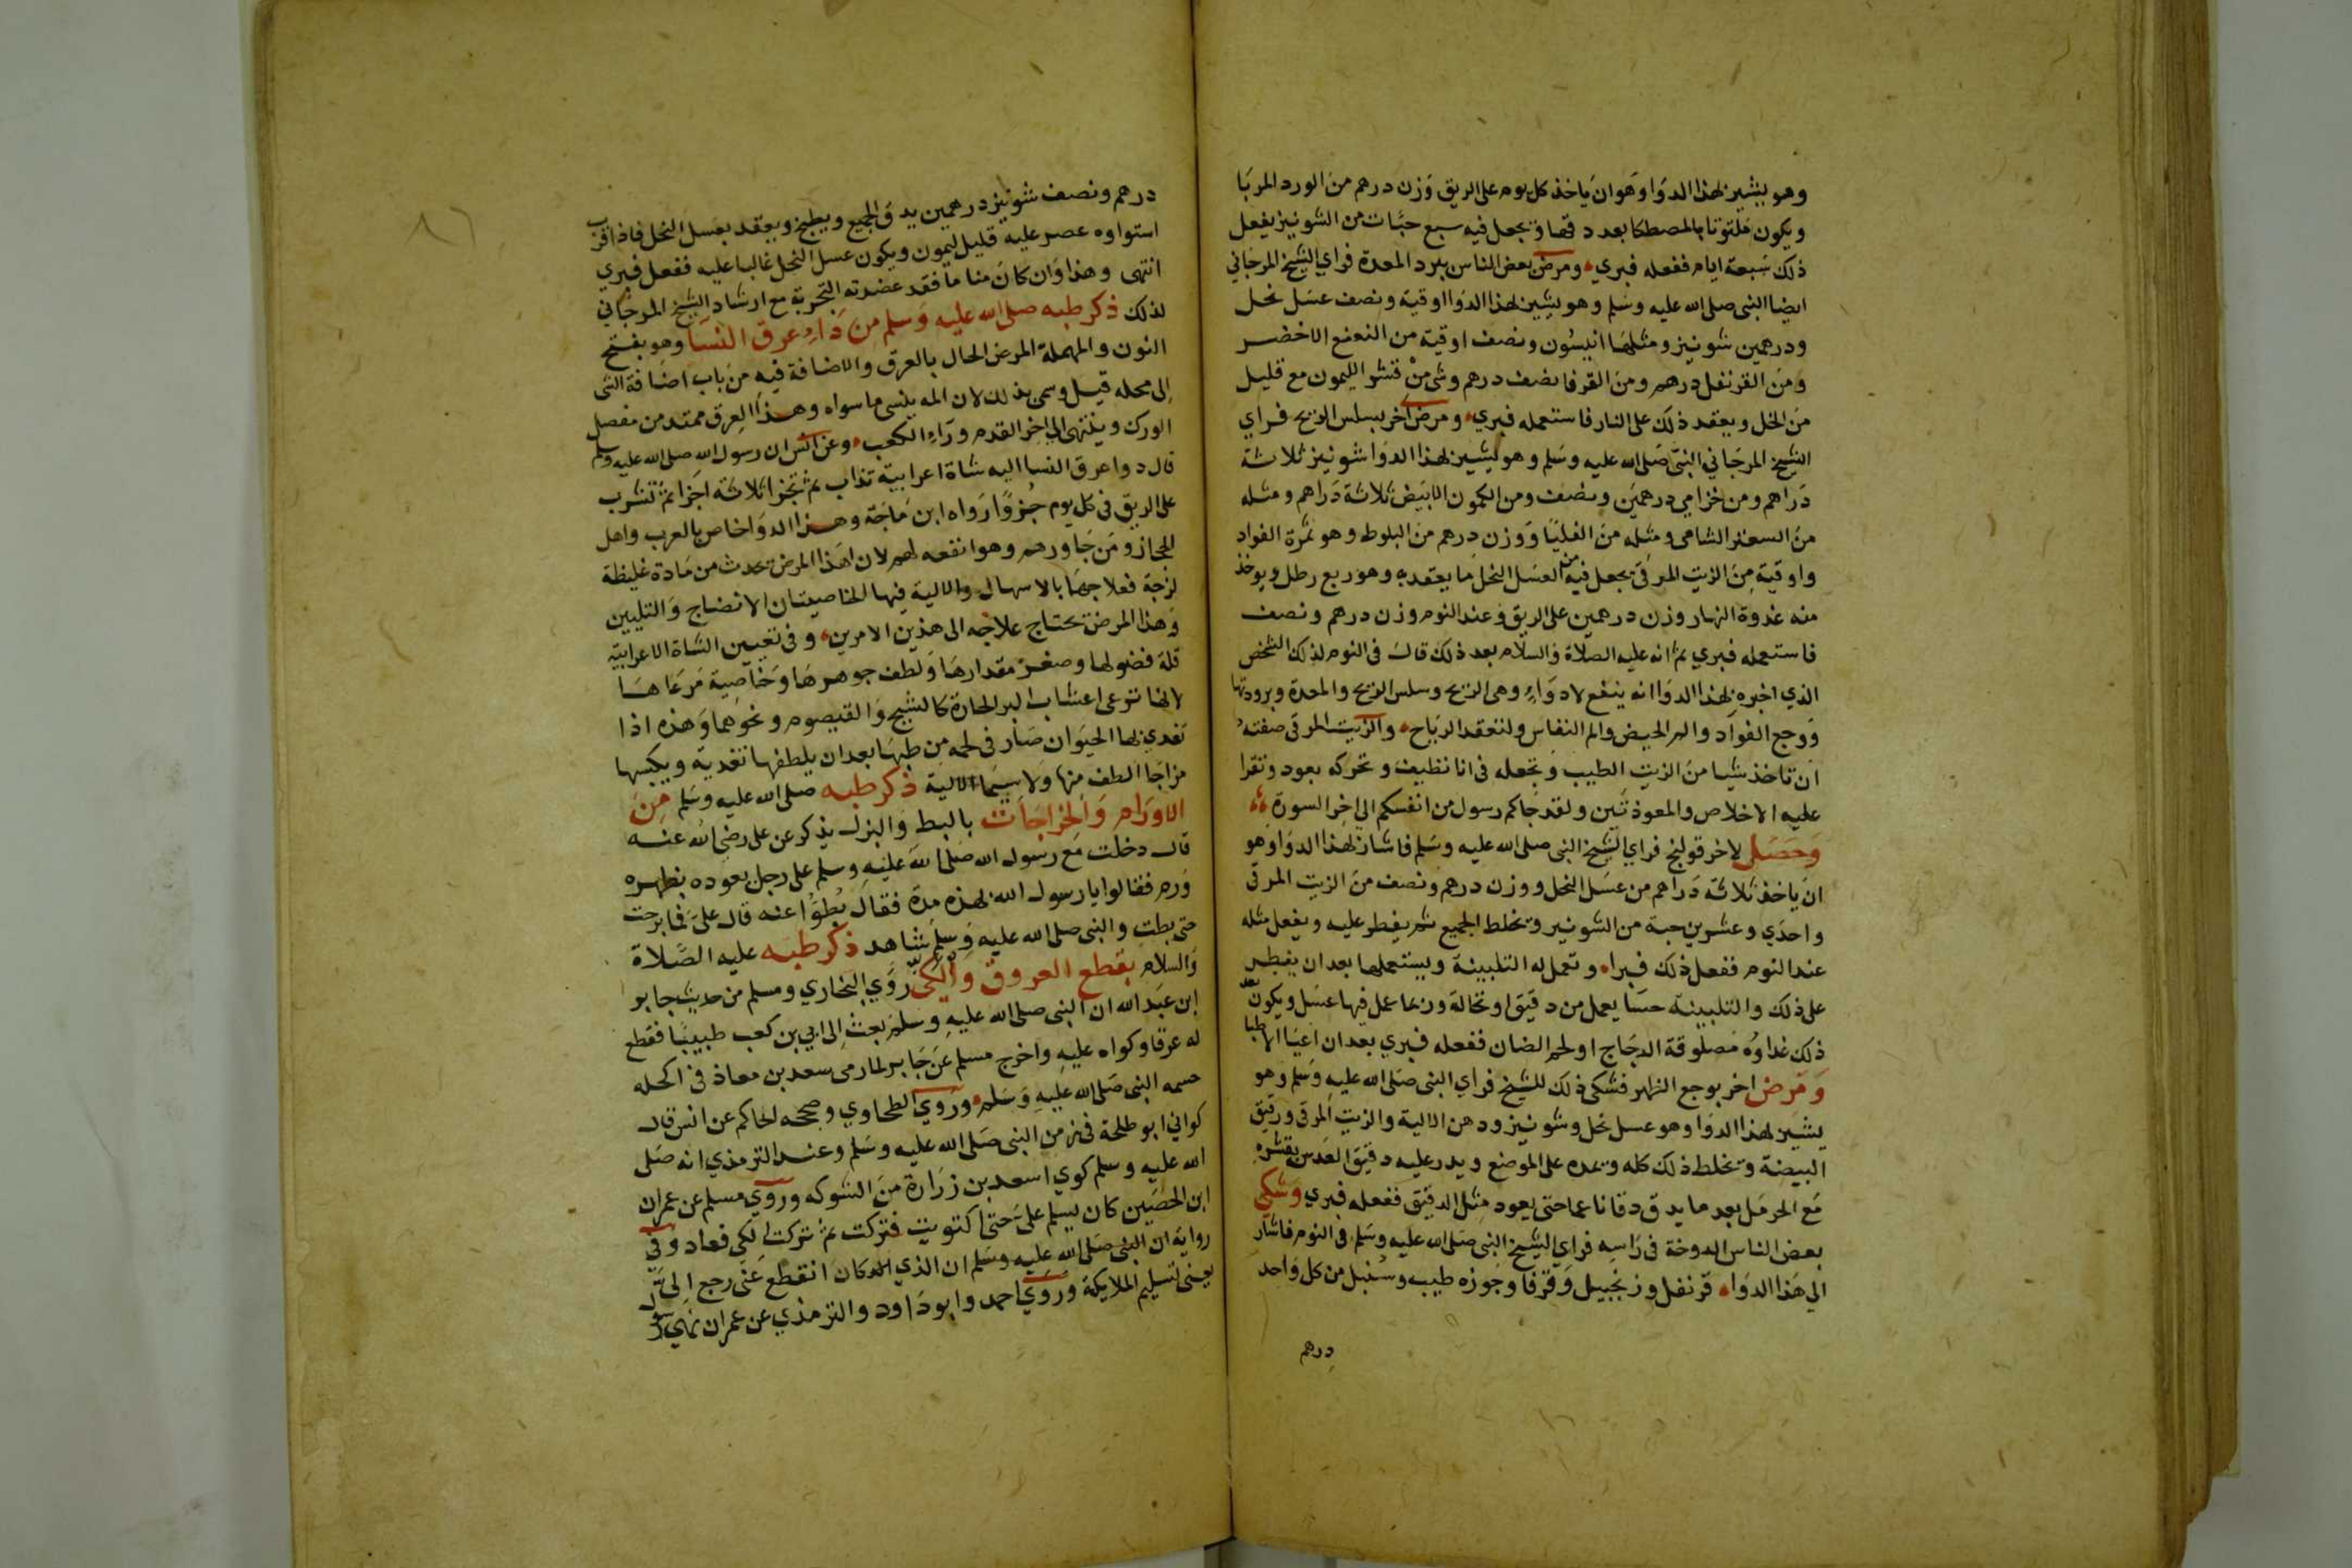 وهو يشير لهذا الدوا وهو ان ياخذ كل يوم على الريق وزن درهم من الورد المربا
ويكون ملتوتا بالمصطكا بعد دقها ويجعل فيه سبع حبات من الشونيز يفعل
ذلك سبعة ايام ففعله فبري ومرض بعض الناس ببرد المعدة فراي الشيخ المرجاني
ايضا النبى صلى الله عليه وسلم وهو يشير لهذا الدوا اوقية ونصف عسل نحل
ودرهمين شونيز ومثلها انيسون ونصف اوقية من النعنع الاخضر
ومن القرنفل درهم ومن القرفا نصف درهم وشى من قشر الليمون مع قليل
من الخل ويعقد ذلك على النار فاستعمله فبري ومرض اخر بسلس الريح فراي
الشيخ المرجاني النبى صلى الله عليه وسلم وهو يشير لهذا الدوا شونيز ثلاثة
دراهم ومن خزامي درهمين ونصف ومن الكمون الابيض ثلاثة دراهم ومثله
من السعتر الشامى ومثله من الفليا ووزن درهم من البلوط وهو ثمرة الفواد
واوقية من الزيت المرقى يجعل فيه من العسل النحل ما يعقد به وهو ربع رطل ويوخذ
منه غدوة النهار وزن درهمين على الريق وعند النوم وزن درهم ونصف
فاستعمله فبري ثم انه عليه الصلاة والسلام بعد ذلك قال فى النوم لذلك الشخص
الذي اخبره بهذا الدوا انه ينفع لادواء وهى الريح وسلس الريح والمعدة وبرودتها
ووجع الفواد والم الحيض والم النفاس ولتعقد الرياح والزيت المرقى صفته
ان تاخذ شيا من الزيت الطيب وتجعله فى انا نظيف وتحركه بعود وتقرا
عليه الاخلاص والمعوذتين ولقد جاكم رسول من انفسكم الى اخر السورة
وحصل لاخر قولنج فراي الشيخ النبى صلى الله عليه وسلم فاشار لهذا الدوا وهو
ان ياخذ ثلاثة دراهم من عسل النحل ووزن درهم ونصف من الزيت المرقى
واحدي وعشرين حبة من الشونيز وتخلط الجميع ثم يفطر عليه ويفعل مثله
عند النوم ففعل ذلك فبراه وتعمل له التلبينة ويستعملها بعد ان يفطر
على ذلك والتلبينة حسا يعمل من دقيق او نخالة وربما عمل فيها عسل ويكون بعد
ذلك غداوه مصلوقة الدجاج او لحم الضان ففعله فبري بعد ان اعيا الاطبا
ومرض اخر بوجع الظهر فشكى ذلك للشيخ فراي النبى صلى الله عليه وسلم وهو
يشير لهذا الدوا وهو عسل نحل وشونيز ودهن الالية والزيت المرقى ورقيق
البيضة وتخلط ذلك كله وتمده على الموضع ويدر عليه دقيق العدس بقشره
مع الحرمل بعد ما يدق دقا ناعما حتى يعود مثل الدقيق ففعله فبري وشكى
بعض الناس الدوخة فى راسه فراي الشيخ النبى صلى الله عليه وسلم فى النوم فاشار
الي هذا الدواه قرنفل وزنجبيل وقرفا وجوزه طيب وسنبل من كل واحد
درهم
درهم ونصف شونيز درهمين يدق الجميع ويطبخ ويعقد بعسل النحل فاذا قرب
استواوه عصر عليه قليل ليمون ويكون عسل النحل غالبا عليه ففعل فبري
انتهى وهذا وان كان مناما فقد عضدته التجربة مع ارشاد الشيخ المرجاني
لذلك ذكر طبه صلى الله عليه وسلم من داء عرق النسا وهو بفتح
النون والمهملة المرض الحال بالعرق والاضافة فيه من باب اضافة الشى
الى محله قيل وسمى بذلك لان المه ينسى ما سواه وهذا العرق ممتد من مفصل
الورك وينتهى الى اخر القدم وراء الكعب وعن انس ان رسول الله صلى الله عليه وسلم
قال دوا عرق النسا اليه شاة اعرابية تذاب ثم تجزا ثلاثة اجزا ثم تشرب
على الريق فى كل يوم جزوا رواه ابن ماجة وهذا الدوا خاص بالعرب واهل
الحجاز ومن جاورهم وهو انفعه لهم لان هذا المرض يحدث من مادة غليظة
لزجة فعلاجها بالاسهال والالية فيها الخاصيتان الانضاج والتليين
وهذا المرض يحتاج علاجه الى هذين الامرين وفى تعيين الشاة الاعرابية
قلة فضولها وصغر مقدارها ولطف جوهرها وخاصية مرعاها
لانها ترعى اعشاب البر الحارة كالشيح والقيصوم ونحوهما وهذه اذا
تغدي بها الحيوان صار فى لحمه من طبها بعد ان يلطفها تغدية ويكسبها
مزاجا الطف منها ولا سيما الالية ذكر طبه صلى الله عليه وسلم من
الاورام والخراجات بالبط والبزل يذكر عن على رضى الله عنه
قال دخلت مع رسول الله صلى الله عليه وسلم على رجل يعوده بظهره
ورم فقالوا يا رسول الله بهذه مدة فقال بطوا عنه قال على فما برحت
حتى بطت والنبى صلى الله عليه وسلم شاهد ذكر طبه عليه الصلاة
والسلام بقطع العروق والكى روي البخاري ومسلم من حديث جابر
ابن عبد الله ان النبى صلى الله عليه وسلم بعث الى ابي بن كعب طبيبا فقطع
له عرقا وكواه عليه واخرج مسلم عن جابر لما رمى سعد بن معاذ فى اكحله
حسمه النبى صلى الله عليه وسلم وروي الطحاوي وصححه الحاكم عن انس قال
كواني ابو طلحة فى زمن النبى صلى الله عليه وسلم وعند الترمذي انه صلى
الله عليه وسلم كوي اسعد بن زرارة من الشوكه وروي مسلم عن عمران
ابن الحصين كان يسلم على حتى اكتويت فتركت ثم تركت الكى فعاد وفى
رواية ان النبى صلى الله عليه وسلم ان الذي كان انقطع عنى رجع الى
يعنى تسليم الملايكة وروي احمد وابو داود والترمذي عن عمران نهى رسول